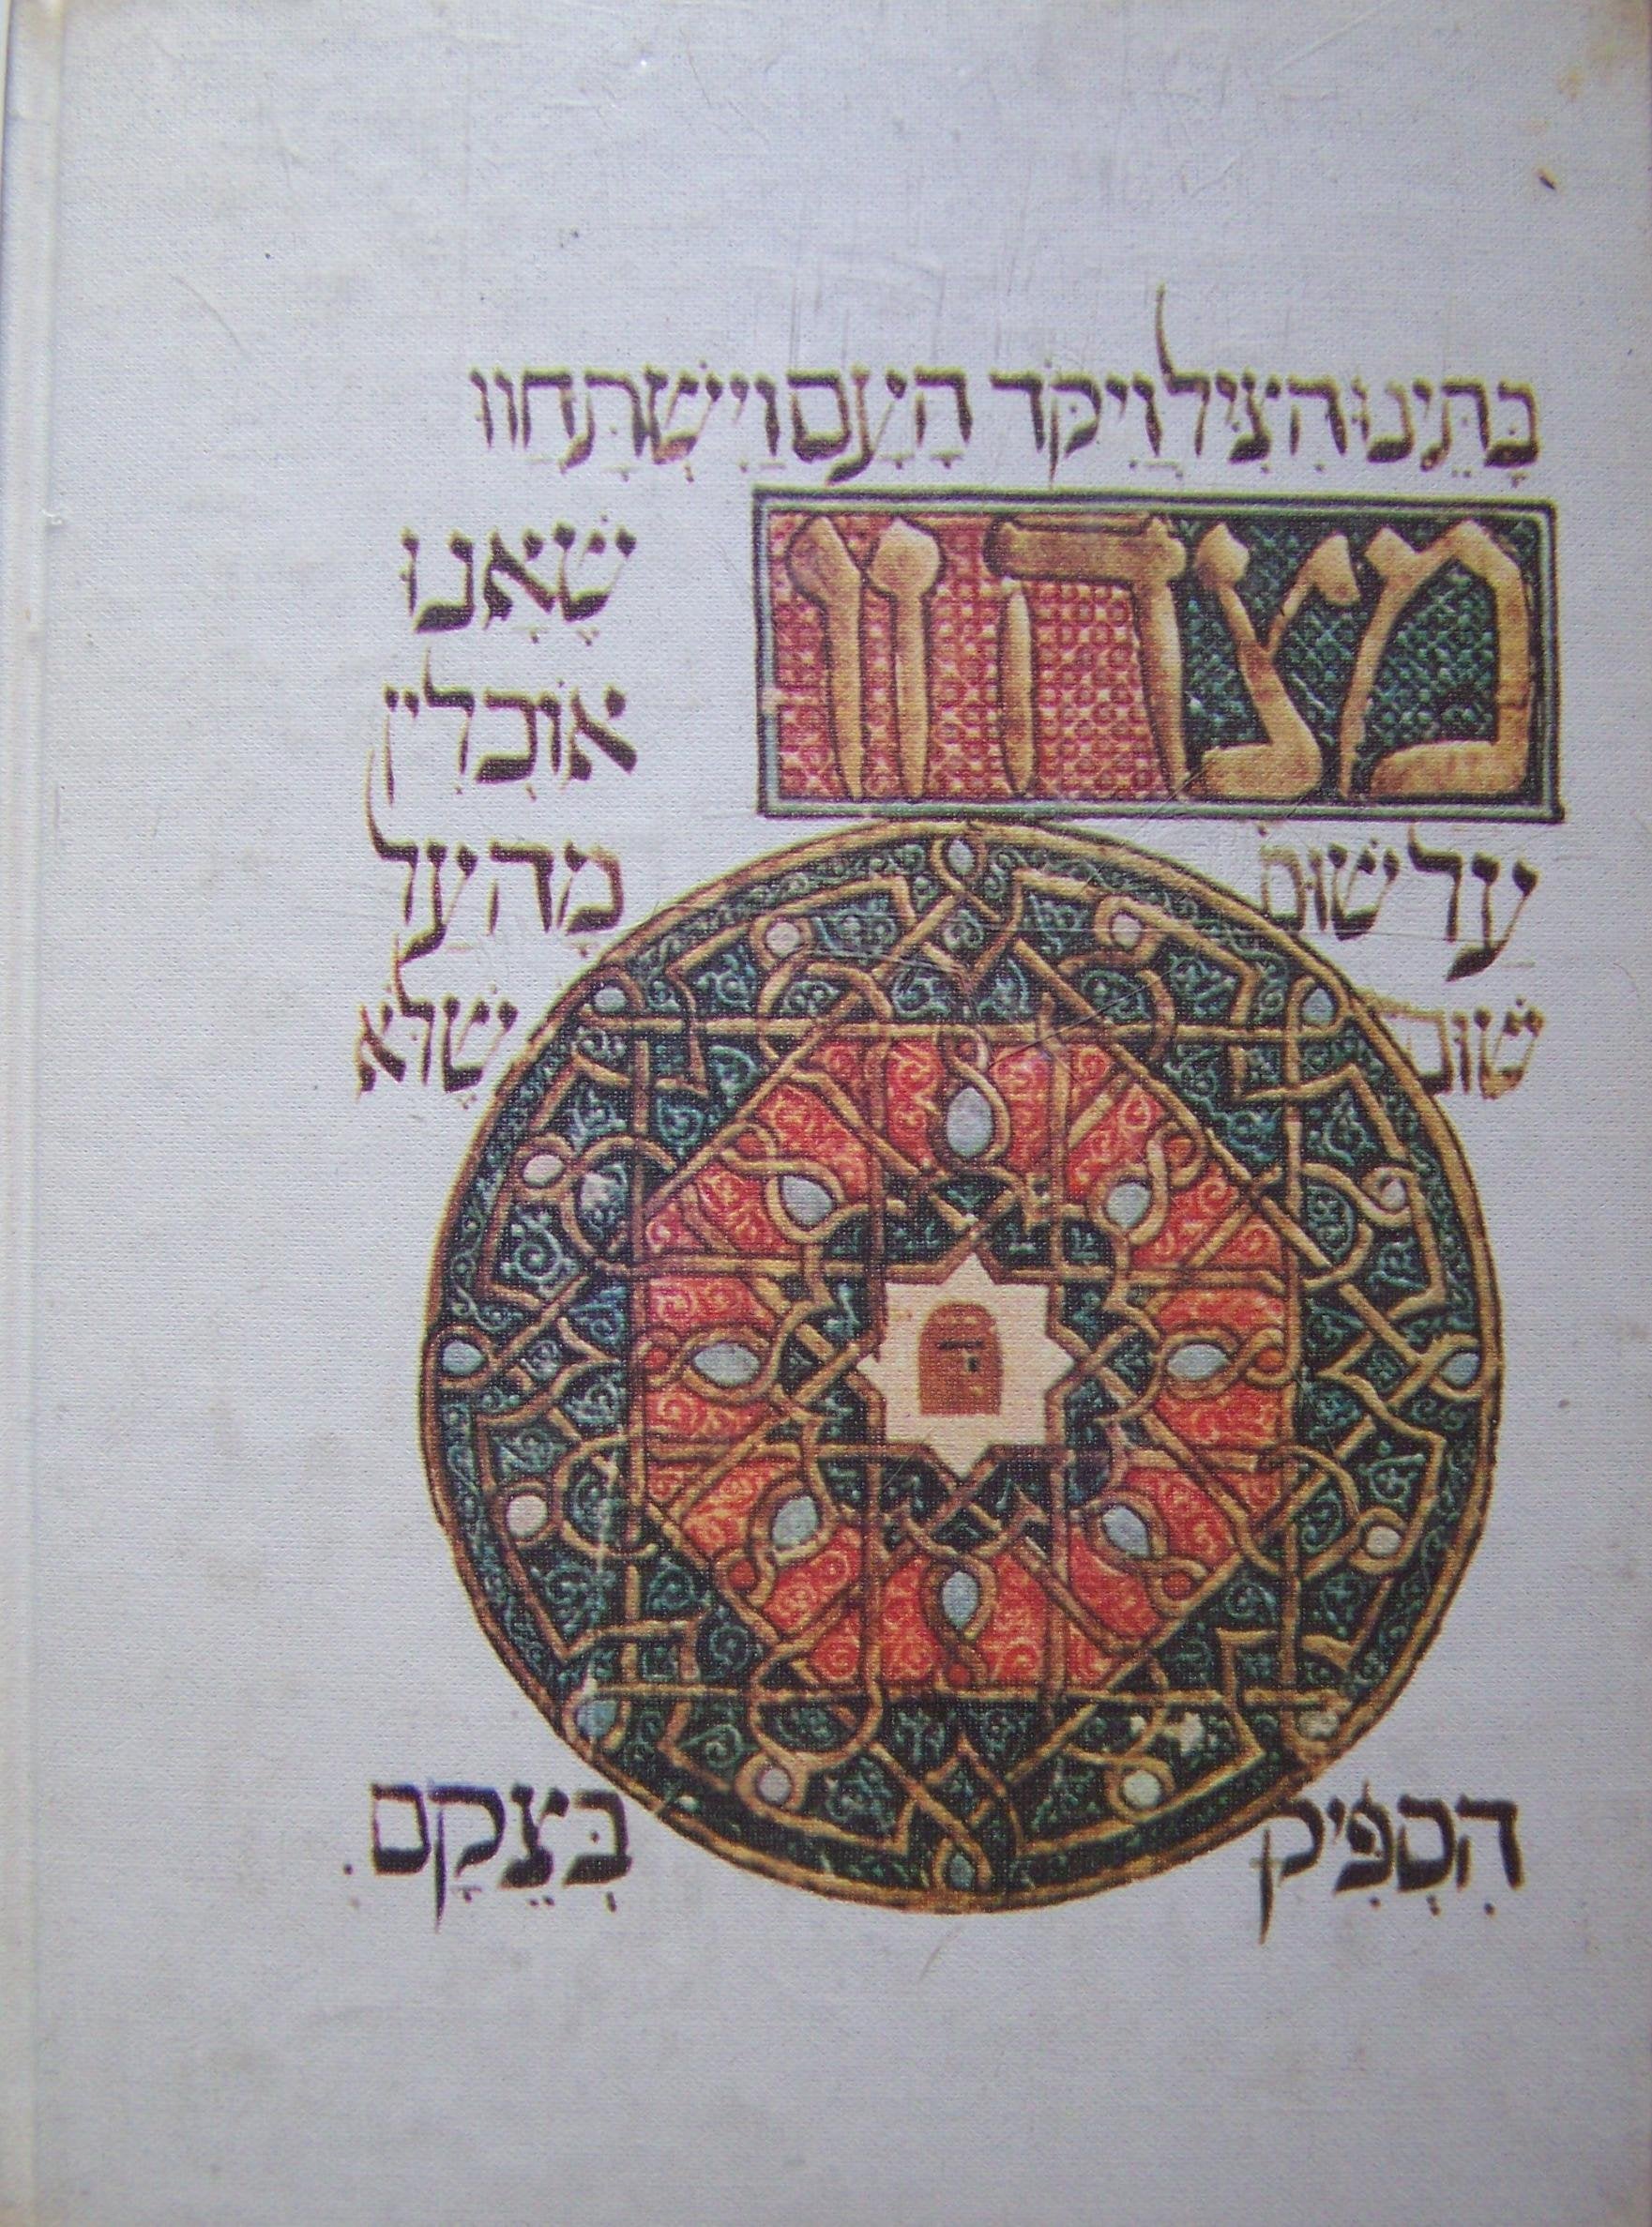 בָּתֵּינוּ הִצִּיל וַיִּקֹּד הָעָם וַיִּשְׁתַּחֲווּ
מצה זו שֶׁאָנוּ
אוֹכְלִין
עַל שׁוּם מָה עַל
שׁוּם שֶׁלֹּא
הִסְפִּיק בְּצֵקָם.